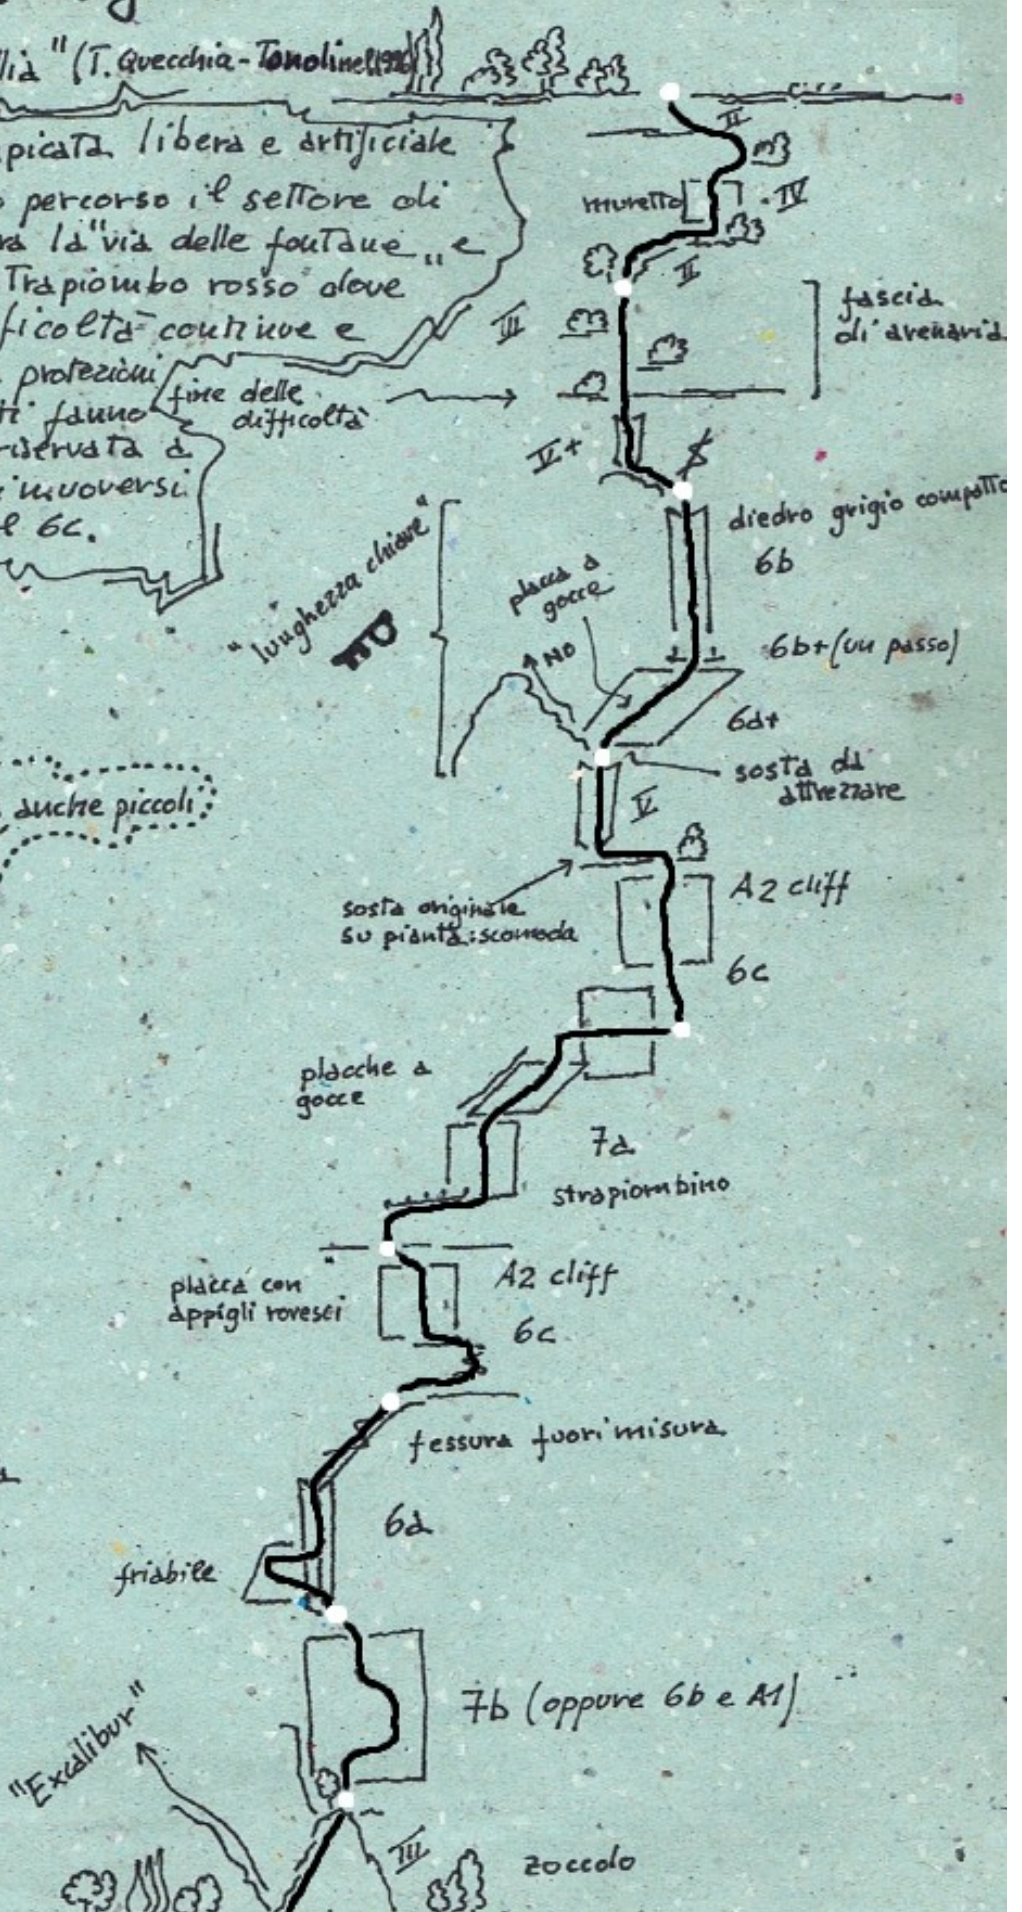 lia" (T. Quecchia - Tonolinelli 1996)
picata libera e artificiale
percorso il settore di
ra la "via delle fontane" e
Trapiombo rosso dove
ficoltà continue e
protezioni
ti fanno
riservata a
muoversi
6c.
II
muretto
IV
II
III
fascia
di arenaria
fine delle
difficoltà
diedro grigio compatto
6b
"lunghezza chiave"
placca a
gocce
NO
6b+ (un passo)
6a+
sosta da
attrezzare
anche piccoli
V
A2 cliff
sosta originale
su pianta: scomoda
6c
placche a
gocce
7a
strapiombino
A2 cliff
placca con
appigli rovesci
6c
fessura fuori misura
6a
friabile
7b (oppure 6b e A1)
"Excalibur"
III
zoccolo